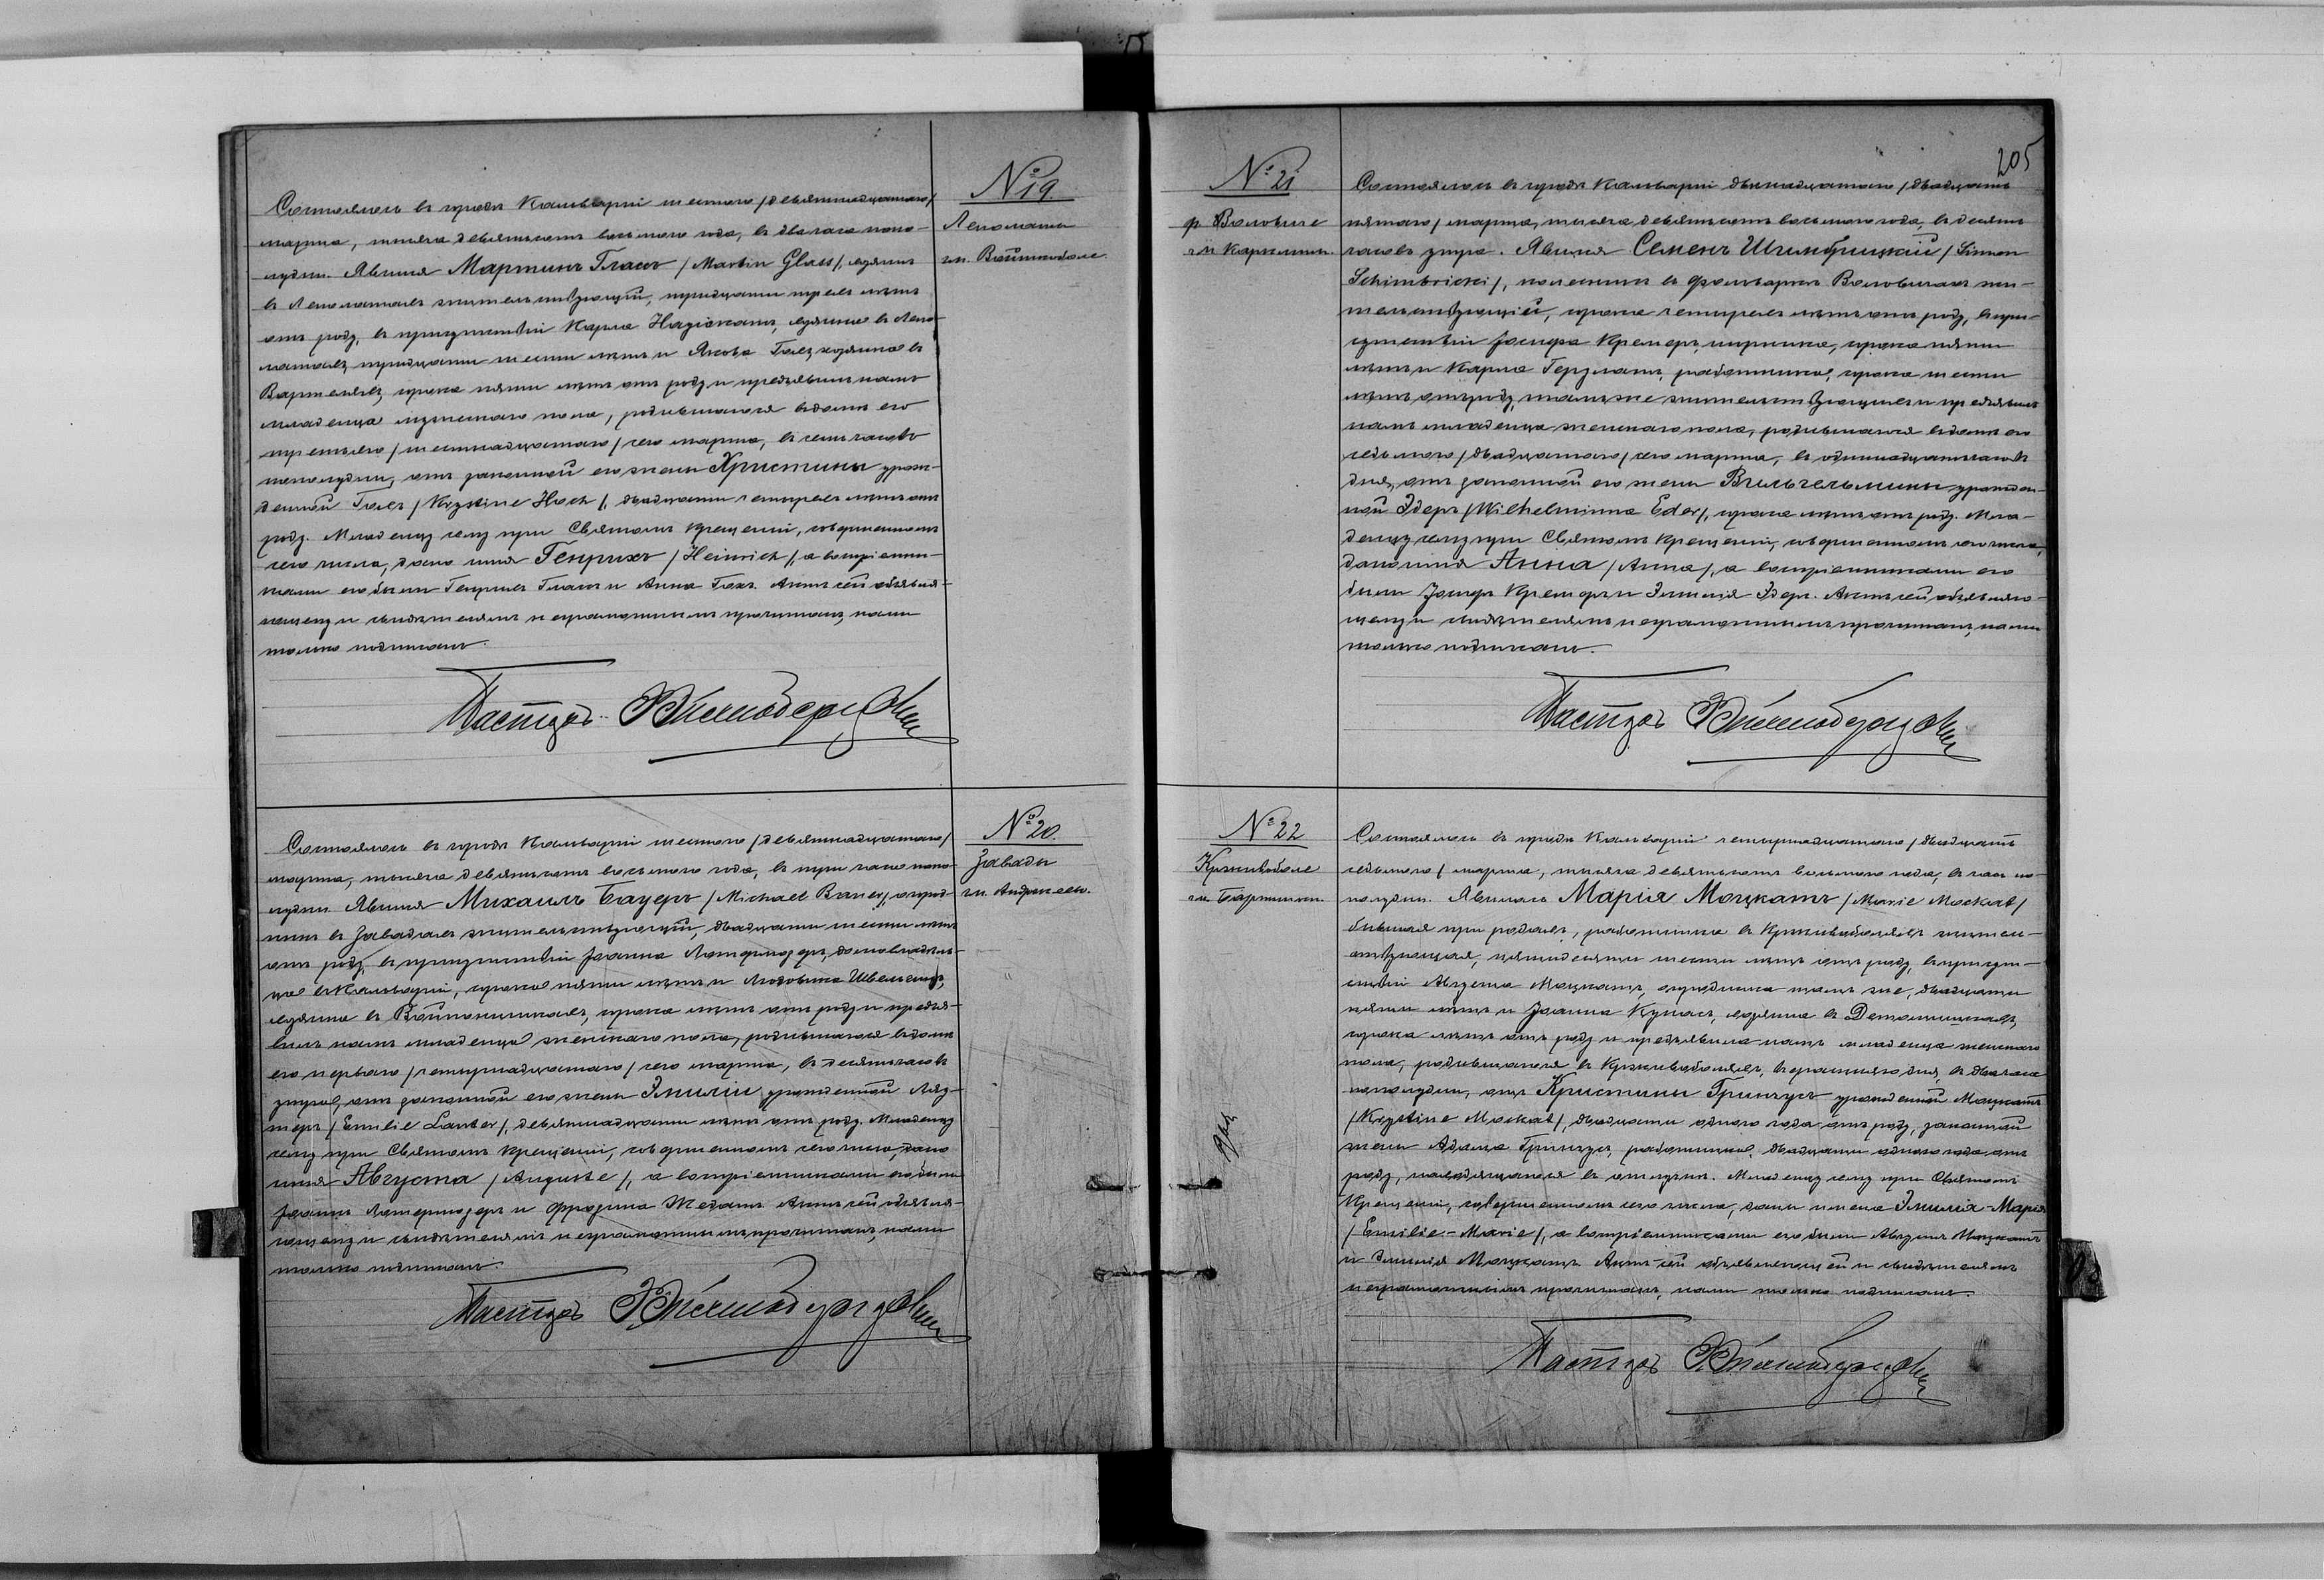 № 19.
Леполаты
гм. Войткоболе.
Состоялось въ городѣ Кальваріи шестого /девятнадцатаго/
марта, тысяча девятьсотъ восьмого года, въ два часа попо-
лудни. Явился Мартинъ Гласъ /Martin Glass/, хозяинъ
въ Леполатахъ жительствующій, тридцати трехъ лѣтъ
отъ роду, въ присутствіи Карла, хозяина въ Лепо-
латахъ, тридцати шести лѣтъ и Якова Гохъ, хозяина въ
сорока пяти лѣтъ отъ роду и предъявилъ намъ
младенца мужескаго пола, родившагося въ домѣ его
третьяго /шестнадцатаго/ сего марта, въ семь часовъ
пополудни, отъ законной его жены Христины урож-
денной Гохъ /Krystine Hoch/, двадцати четырехъ лѣтъ отъ
роду. Младенцу сему при Святомъ Крещеніи, совершенномъ
сего числа, дано имя Генрихъ /Heinrich/, а воспріемни-
ками его были Генрихъ Гласъ и Анна Гохъ. Актъ сей объявля-
ющему и свидѣтелямъ неграмотнымъ прочитанъ, нами
только подписанъ.
Пасторъ
№ 20.
Завады
гм. Андржеево.
Состоялось въ городѣ Кальваріи шестого /девятнадцатаго/
марта, тысяча девятьсотъ восьмого года, въ три часа попо-
лудни. Явился Михаилъ Бауеръ /Michael Bauer/, огород-
никъ въ Завадахъ жительствующій, двадцати шести лѣтъ
отъ роду, въ присутствіи Іоанна, домовладѣль-
ца въ Кальваріи, сорока пяти лѣтъ и Людовика
хозяина въ сорока лѣтъ отъ роду и предъя-
вилъ намъ младенца женскаго пола, родившагося въ домѣ
его перваго /четырнадцатаго/ сего марта, въ десять часовъ
утра, отъ законной его жены Эмиліи урожденной Лау-
теръ /Emilie Lauter/, девятнадцати лѣтъ отъ роду. Младенцу
сему при Святомъ Крещеніи, совершенномъ сего числа, дано
имя Августа /Auguste/, а воспріемниками его были
Іоаннъ и Актъ сей объявля-
ющему и свидѣтелямъ неграмотнымъ прочитанъ, нами
только подписанъ.
Пасторъ
205
№ 21
ф. Воловизе
гм. Кирсн.
Состоялось въ городѣ Кальваріи двѣнадцатаго /двадцать
пятаго/ марта, тысяча девятьсотъ восьмого года, въ десять
часовъ утра. Явился Семенъ Шимбрицкій /Simon
Schimbricki/, въ фольваркѣ жи-
тельствующій, сорока четырехъ лѣтъ отъ роду, въ при-
сутствіи Іосифа Кремеръ, сорока пяти
лѣтъ и Карла, работника, сорока шести
лѣтъ отъ роду, тамъ же жительствующихъ и предъявилъ
намъ младенца женскаго пола, родившагося въ домѣ его
седьмого /двадцатаго/ сего марта, въ одиннадцать часовъ
дня, отъ законной его жены Вильгельмины урожден-
ной Эдеръ /Wilhelmina Eder/, сорока лѣтъ отъ роду. Мла-
денцу сему при Святомъ Крещеніи, совершенномъ сего числа,
дано имя Анна /Anna/, а воспріемниками его
были Іосифъ Кремеръ и Эмилія Эдеръ. Актъ сей объявляю-
щему и свидѣтелямъ неграмотнымъ прочитанъ, нами
только подписанъ.
Пасторъ
№ 22
Крживоболе
гм. Бартники.
Состоялось въ городѣ Кальваріи четырнадцатаго /двадцать
седьмого/ марта, тысяча девятьсотъ восьмого года, въ часъ по-
полудни. Явилась Марія Моцкатъ /Marie Mockat/
бывшая при родахъ, работница въ Крживоболяхъ житель-
ствующая, пятидесяти шести лѣтъ отъ роду, въ присут-
ствіи Августа Моцкатъ, огородника тамъ же, двадцати
пяти лѣтъ и Іоанна Кунасъ, хозяина въ
сорока лѣтъ отъ роду и предъявила намъ младенца женскаго
пола, родившагося въ Крживоболяхъ, вчерашняго дня, въ два часа
пополудни, отъ Кристины Гринчусъ урожденной Моцкатъ
/Krystine Mockat/, двадцати одного года отъ роду, законной
жены Адама Гринчусъ, работника, двадцати одного года отъ
роду, находящагося въ отлучкѣ. Младенцу сему при Святомъ
Крещеніи, совершенномъ сего числа, даны имена Эмилія-Марія
/Emilie-Marie/, а воспріемниками его были Августъ Моцкатъ
и Эмилія Моцкатъ. Актъ сей объявляющей и свидѣтелямъ
неграмотнымъ прочитанъ, нами только подписанъ.
Пасторъ